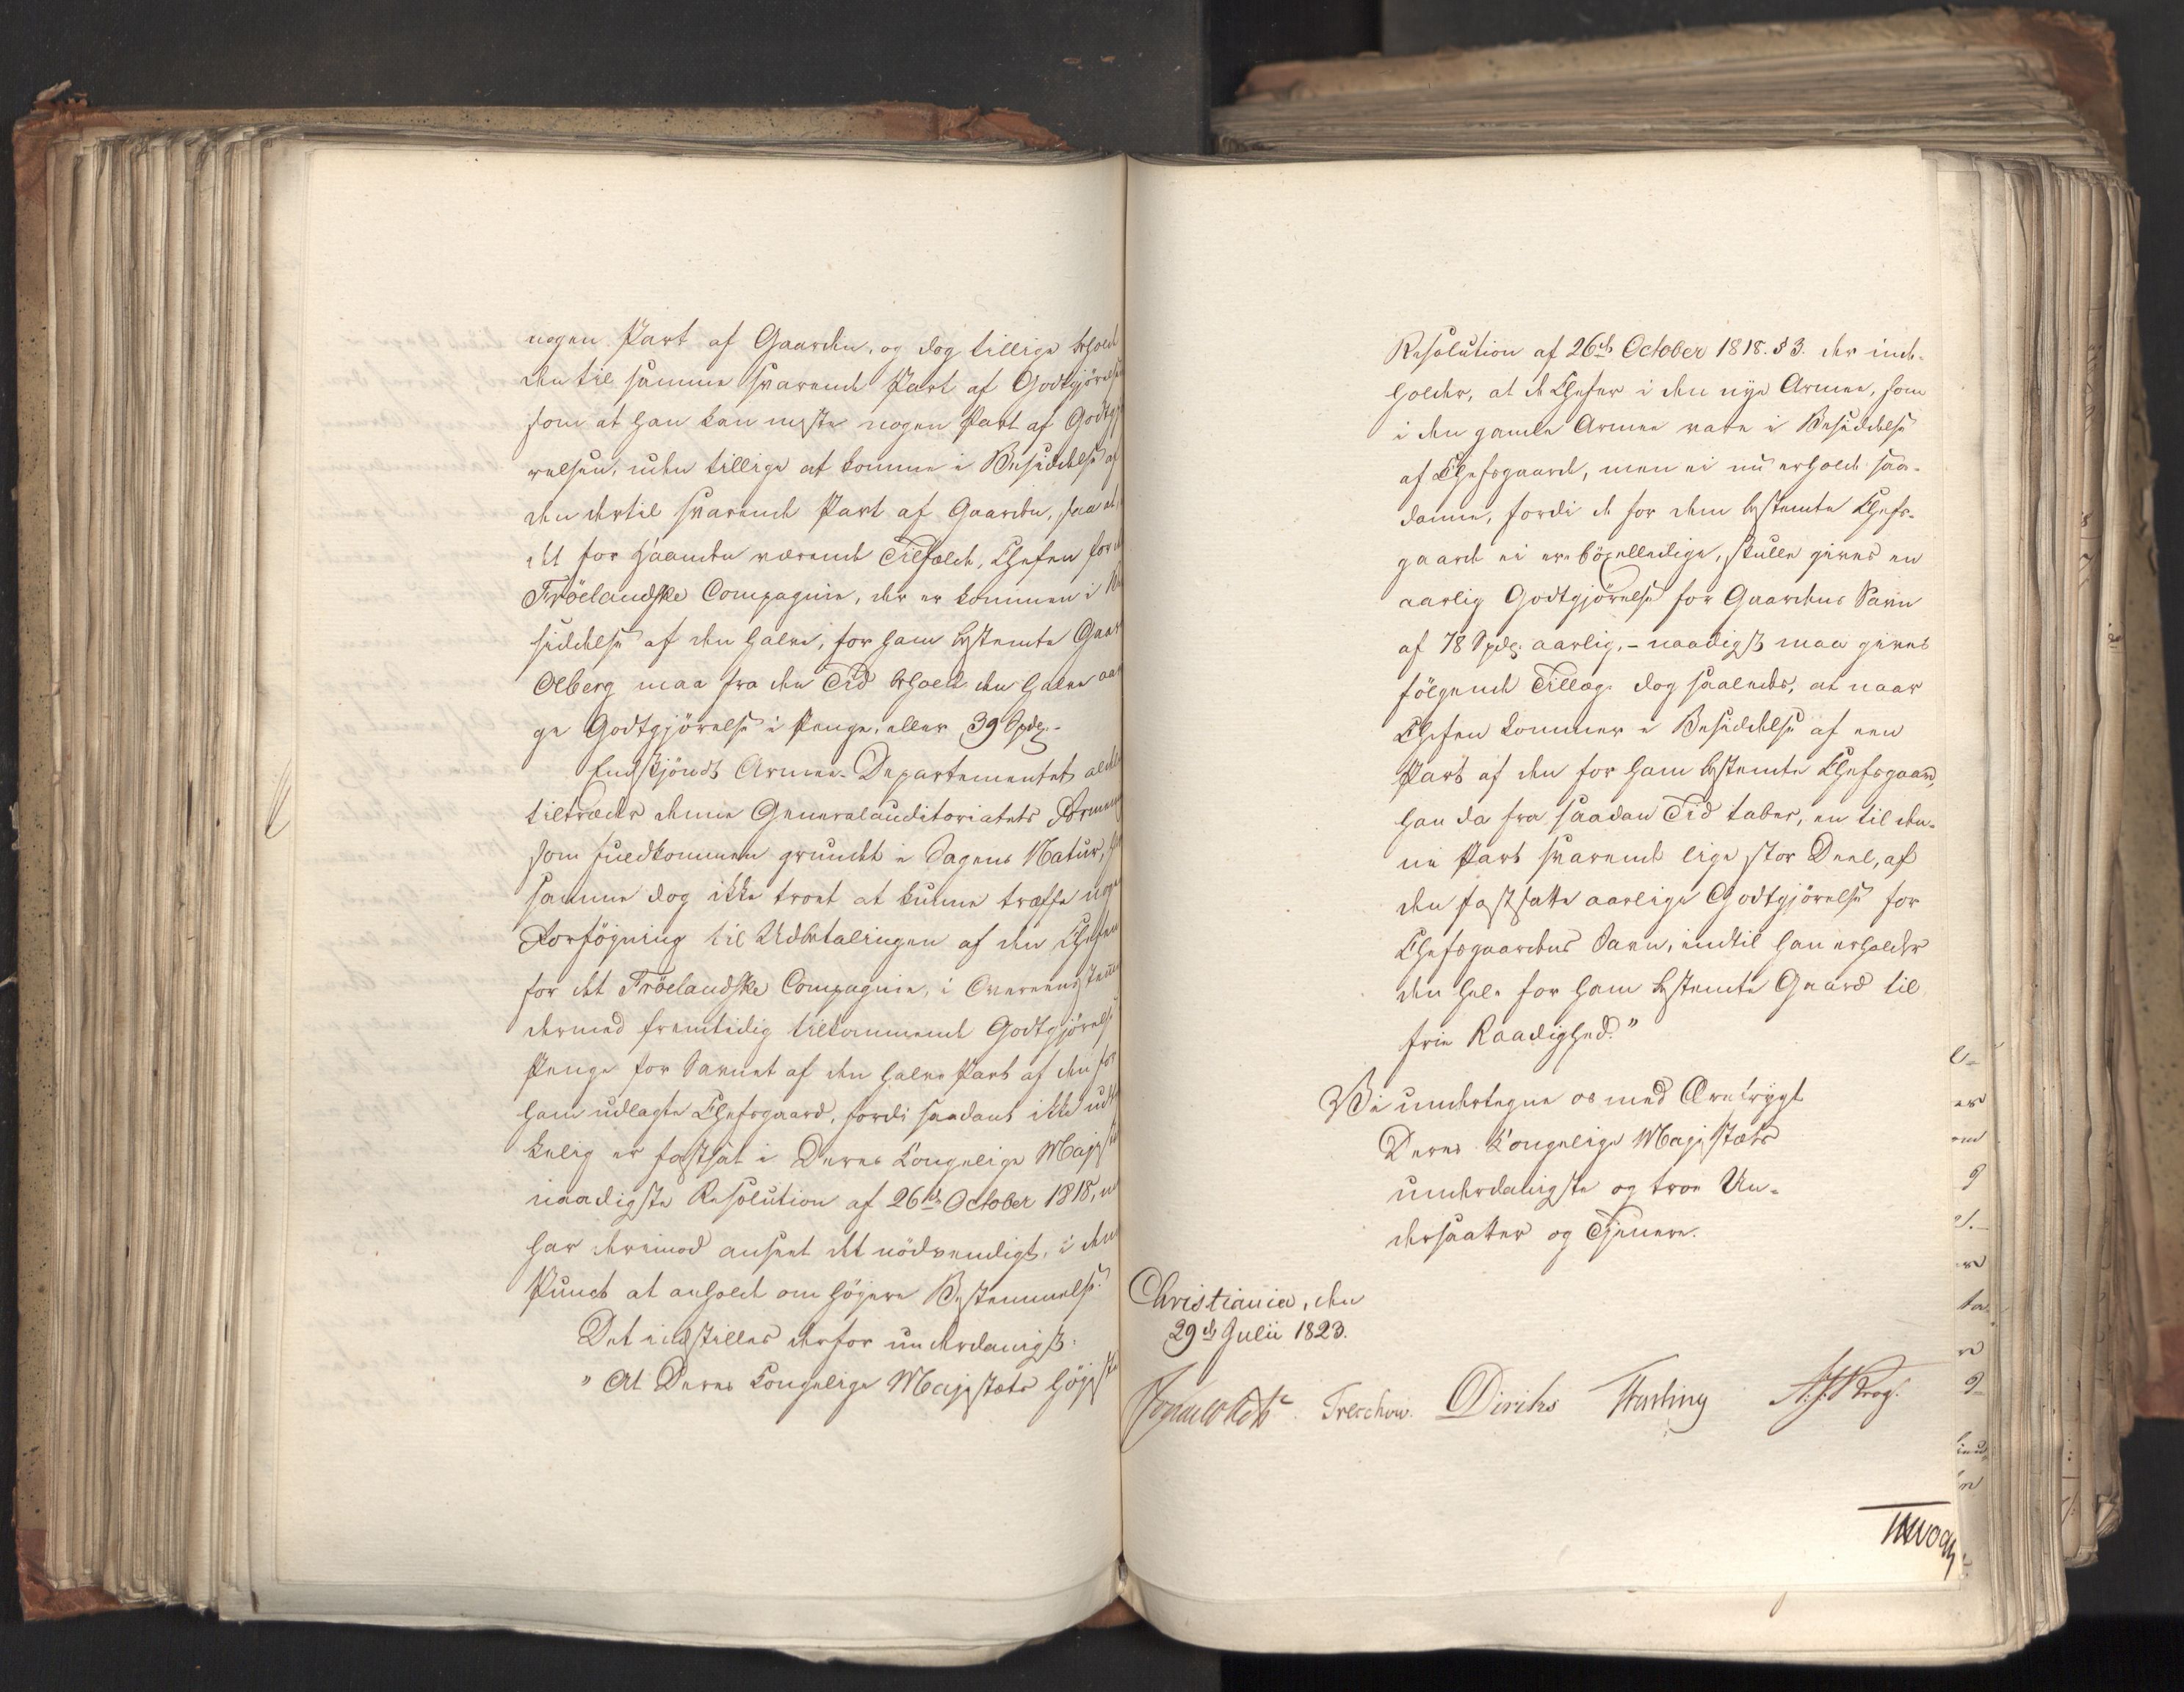 nogen Part af Gaarden, og dog tillige beholde
den til samme svarende Part af Godtgjörelsen
som at han kan miste nogen Part af Godtgjö
relsen, uden tillige at komme i Besiddelse af
den dertil svarende Part af Gaarden, saa at,
i det for Haanden værende Tilfælde, Chefen for
Tröelandske Compagnie, der er kommen i Be
siddelse af den halve, for ham bestemte Gaard
Olberg maa fra den Tid beholde den halve aar
ge Godtgjörelse i Penge, eller 39 Spdlr.
Endskjöndt Armee-Departementet aldeles
tiltræder denne Generalauditoriatets Formening
som fuldkommen grundet i Sagens Natur, har
samme dog ikke troet at kunne træffe nogen
Forföyning til Udbetalingen af den Chefen
for det Tröelandske Compagnie, i Overeensstemme
dermed fremtidig tilkommende Godtgjörelse
Penge for Savnet af den halve Part af den for
ham udlagte Chefsgaard, fordi saadant ikke udtr
kelig er fastsat i Deres Kongelige Majestæts
naadigste Resolution af 26de October 1818, m
har derimod anseet det nödvendigt, i dette
Punct at anholde om höjere Bestemmelse.
Det indstilles derfor underdanigst:
"At Deres Kongelige Majestæts Höjeste
Resolution af 26de October 1818. § 3. der inde-
holder, at de Chefer i den nye Armee, som
i den gamle Armee vare i Besiddelse
af Chefsgaard, men ei nu erholde saa-
danne, fordi de for dem bestemte Chefs-
gaarde ei ereböxelledige, skulle gives en
aarlig Godtgjörelse for Gaardens Savn
af 78 Spdlr. aarlig, - naadigst maa gives
fölgende Tillæg: dog saaledes, at naar
Chefen kommer i Besiddelse af een
Part af den for ham bestemte Chefsgaard,
han da fra saadan Tid taber, en til den-
ne Part svarende lige stor Deel, af
den fastsatte aarlige Godtgjörelse for
Chefsgaardens Savn, indtil han erholder
den hele for ham bestemte Gaard til
frie Raadighed."
Vi undertegne os med Ærefrygt
Deres Kongelige Majestæts
underdanigste og troe Un-
dersaatter og Tjenere.
Christiania, den
29de Julii 1823.
Sommerfeldt Treschow. Diriks Fasting